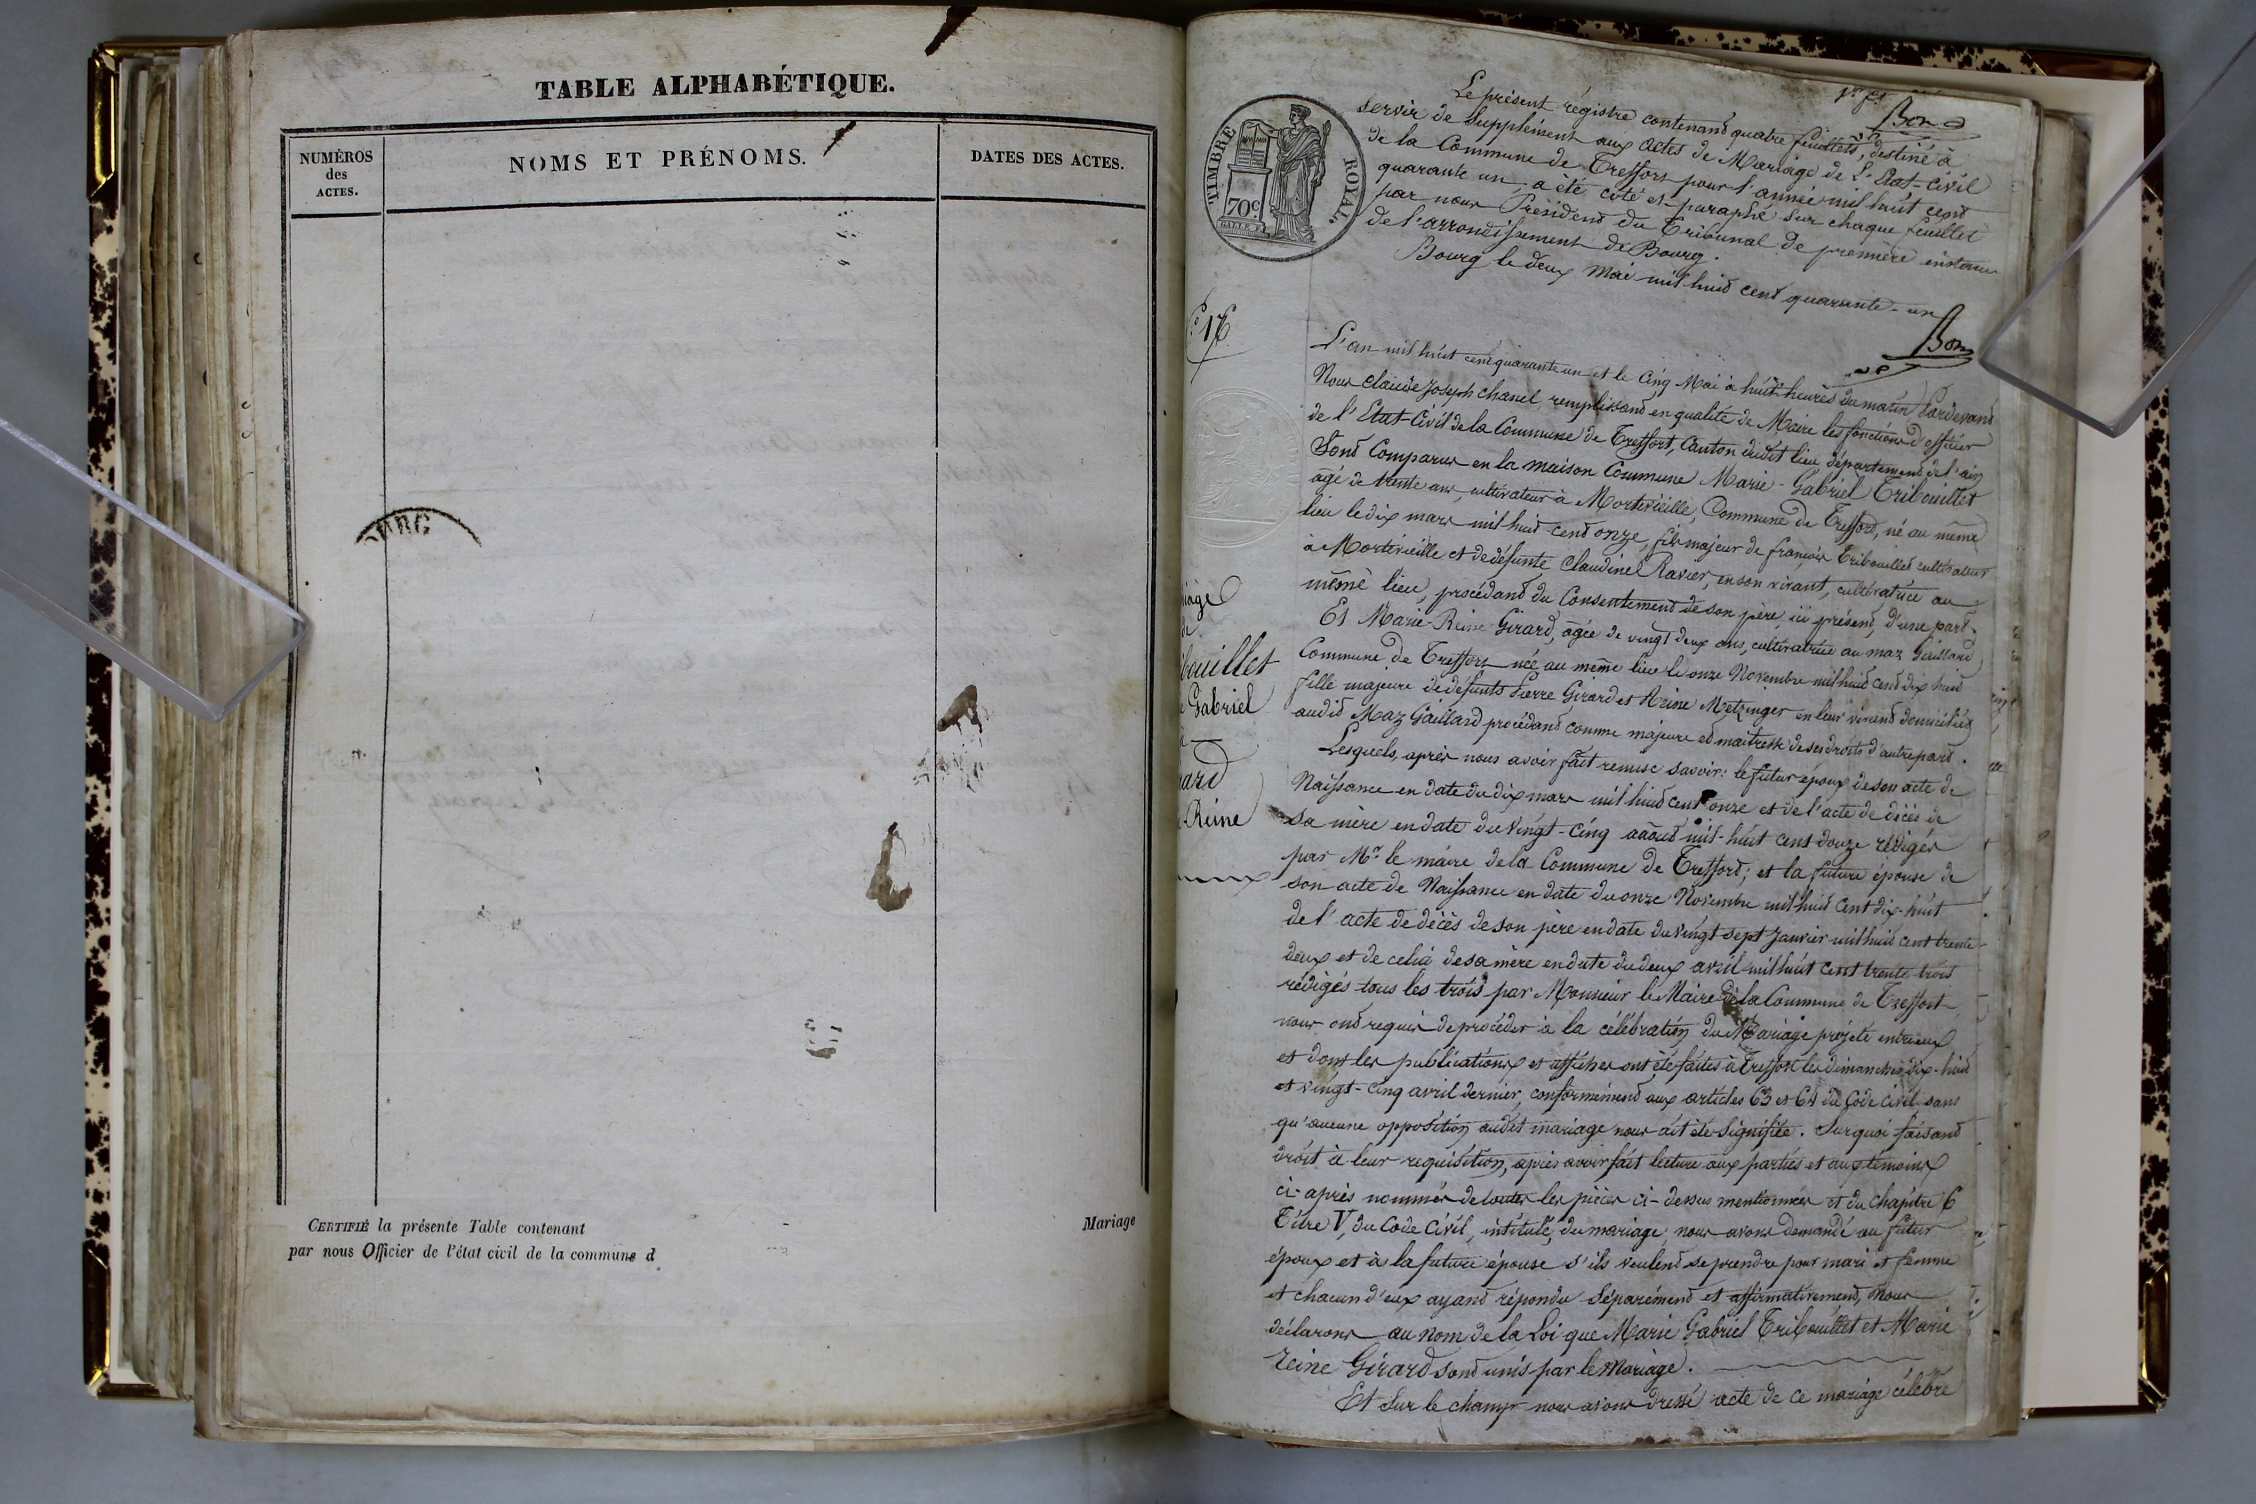 TABLE ALPHABÉTIQUE.
NUMÉROS
des
ACTES.
NOMS ET PRÉNOMS.
DATES DES ACTES.
OURG
CERTIFIÉ la présente Table contenant
par nous Officier de l'état civil de la commune d
Mariage
TIMBRE ROYAL.
70c
Bon
Le présent régistre contenant quatre feuillets, destiné à
servir de Supplément aux actes de Mariage de l'Etat-Civil
de la Commune de Treffort pour l'année mil huit cent
quarante un, a été coté et paraphé sur chaque feuillet
par nous Président du Tribunal de première instance
de l'arrondissement de Bourg.
Bourg le deux Mai mil huit cent quarante-un
Bon
16
L'an mil huit cent quarante un et le Cinq Mai à huit heures du matin Pardevant
Nous Claude Joseph Chanel remplissant en qualité de Maire les fonctions d'officier
de l'Etat-Civil de la Commune de Treffort, Canton dudit lieu département de l'ain
Sont Comparus en la maison Commune Marie-Gabriel Tribouillet
agé de trente ans, cultivateur à Mortevieille, Commune de Treffort, né au même
lieu le dix mars mil huit cent onze, fils majeur de françois Tribouillet cultivateur
à Mortevieille et de défunte Claudine Ravier, en son vivant, cultivatrice au
même lieu, procédant du Consentement de son père, ici présent, d'une part.
Et Marie-Reine Girard, agée de vingt deux ans, cultivatrice au maz Gaillard
Commune de Treffort née au même lieu le onze Novembre mil huit cent dix huit
fille majeure de défunts Pierre Girard et Reine Metzinger en leur vivant domiciliés
audit Maz Gaillard procédant comme majeure et maitresse de ses droits d'autre part.
Lesquels, après nous avoir fait remise savoir: le futur époux de son acte de
Naissance en date du dix mars mil huit cent onze et de l'acte de décès de
sa mère en date du vingt-cinq août mil-huit cent douze rédigés
par Mr le maire de la Commune de Treffort; et la future épouse de
son acte de Naissance en date du onze Novembre mil huit cent dix-huit
de l'acte de décès de son père en date du vingt sept Janvier mil huit cent trente
deux et de celui de sa mère en date du deux avril mil huit cent trente trois
rédigés tous les trois par Monsieur le Maire de la Commune de Treffort
nous ont requis de procéder à la célébration du Mariage projeté entre eux
et dont les publications et affiches ont été faites à Treffort les dimanches dix-huit
et vingt-cinq avril dernier, conformément aux articles 63 et 64 du Code Civil sans
qu'aucune opposition audit mariage nous ait été signifiée. Sur quoi faisant
droit à leur requisition, après avoir fait lecture aux parties et aux témoins
ci-après nommés de toutes les pièces ci-dessus mentionnées et du chapitre 6
Titre V, du Code Civil, intitulé, du mariage, nous avons demandé au futur
époux et à la future épouse s'ils veulent se prendre pour mari et femme
et chacun d'eux ayant répondu séparément et affirmativement, Nous
déclarons au nom de la Loi que Marie Gabriel Tribouillet et Marie
reine Girard sont unis par le Mariage.
Et Sur le champ nous avons dressé acte de ce mariage célébré
iage
de
bouillet
Gabriel
ard
Reine